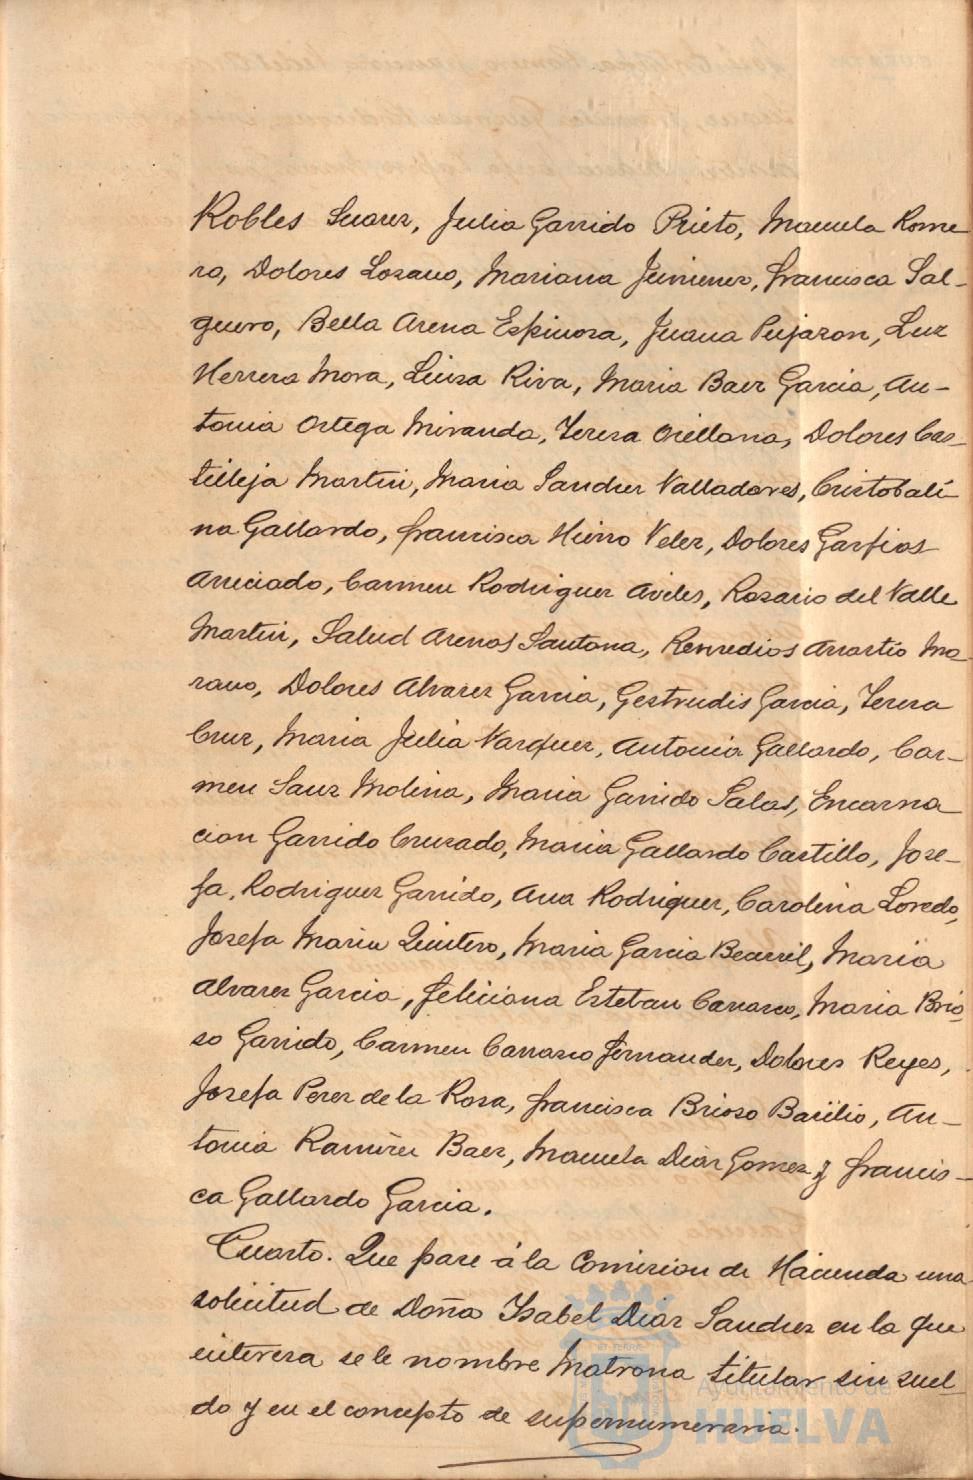 Robles Suarez, Julia Garrido Prieto, Manuela Rome
ro, Dolores Lozano, Mariana Jimenez, Francisca Sal-
guero, Bella Arena Espinosa, Juana Pujazon, Luz
Herrera Mora, Luisa Riva, Maria Baez Garcia, An-
tonia Ortega Miranda, Teresa Orellana, Dolores Cas-
tilleja Martin, Maria Sanchez Valladares, Cristobali-
na Gallardo, Francisca Hierro Velez, Dolores Garfias
Areciado, Carmen Rodriguez Aviles, Rosario del Valle
Martin, Salud Arenas Santana, Remedios Mo-
rano, Dolores Alvarez Garcia, Gertrudis Garcia, Teresa
Cruz, Maria Julia Vazquez, Antonia Gallardo, Car-
men Sanz Molina, Maria Garrido Salas, Encarna
cion Garrido Cruzado, Maria Gallardo Castillo, Jose-
fa, Rodriguez Garrido, Ana Rodriguez, Carolina Loredo,
Josefa Maria Quintero, Maria Garcia Becerril, Maria
Alvarez Garcia, Feliciana Esteban Carrasco, Maria Brio
so Garrido, Carmen Carrasco Fernandez, Dolores Reyes,
Josefa Perez de la Rosa, Francisca Brioso Basilio, An-
tonia Ramirez Baez, Manuela Diaz Gomez y Francis-
ca Gallardo Garcia.
Cuarto. Que pase á la Comision de Hacienda una
solicitud de Doña Isabel Diaz Sanchez en la que
interesa se le nombre Matrona titular sin suel
do y en el concepto de supernumeraria.
Ayuntamiento de
HUELVA